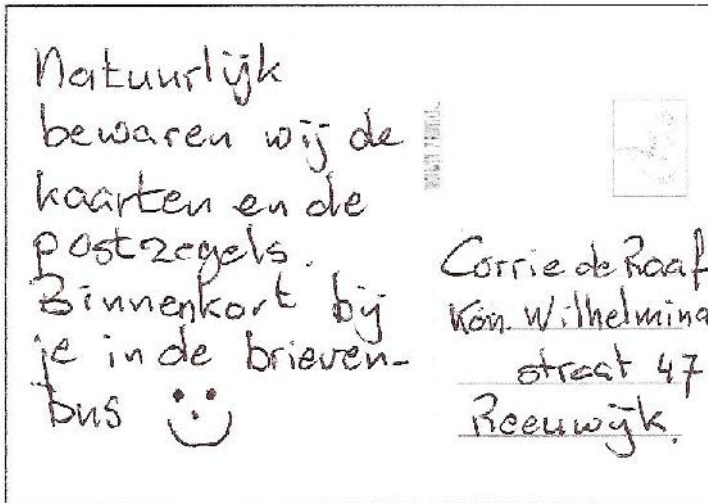 Natuurlijk
bewaren wij de
kaarten en de
postzegels.
Binnenkort bij
je in de brieven-
bus
Corrie de Raaf
Kon. Wilhelmina
straat 47
Reeuwijk.